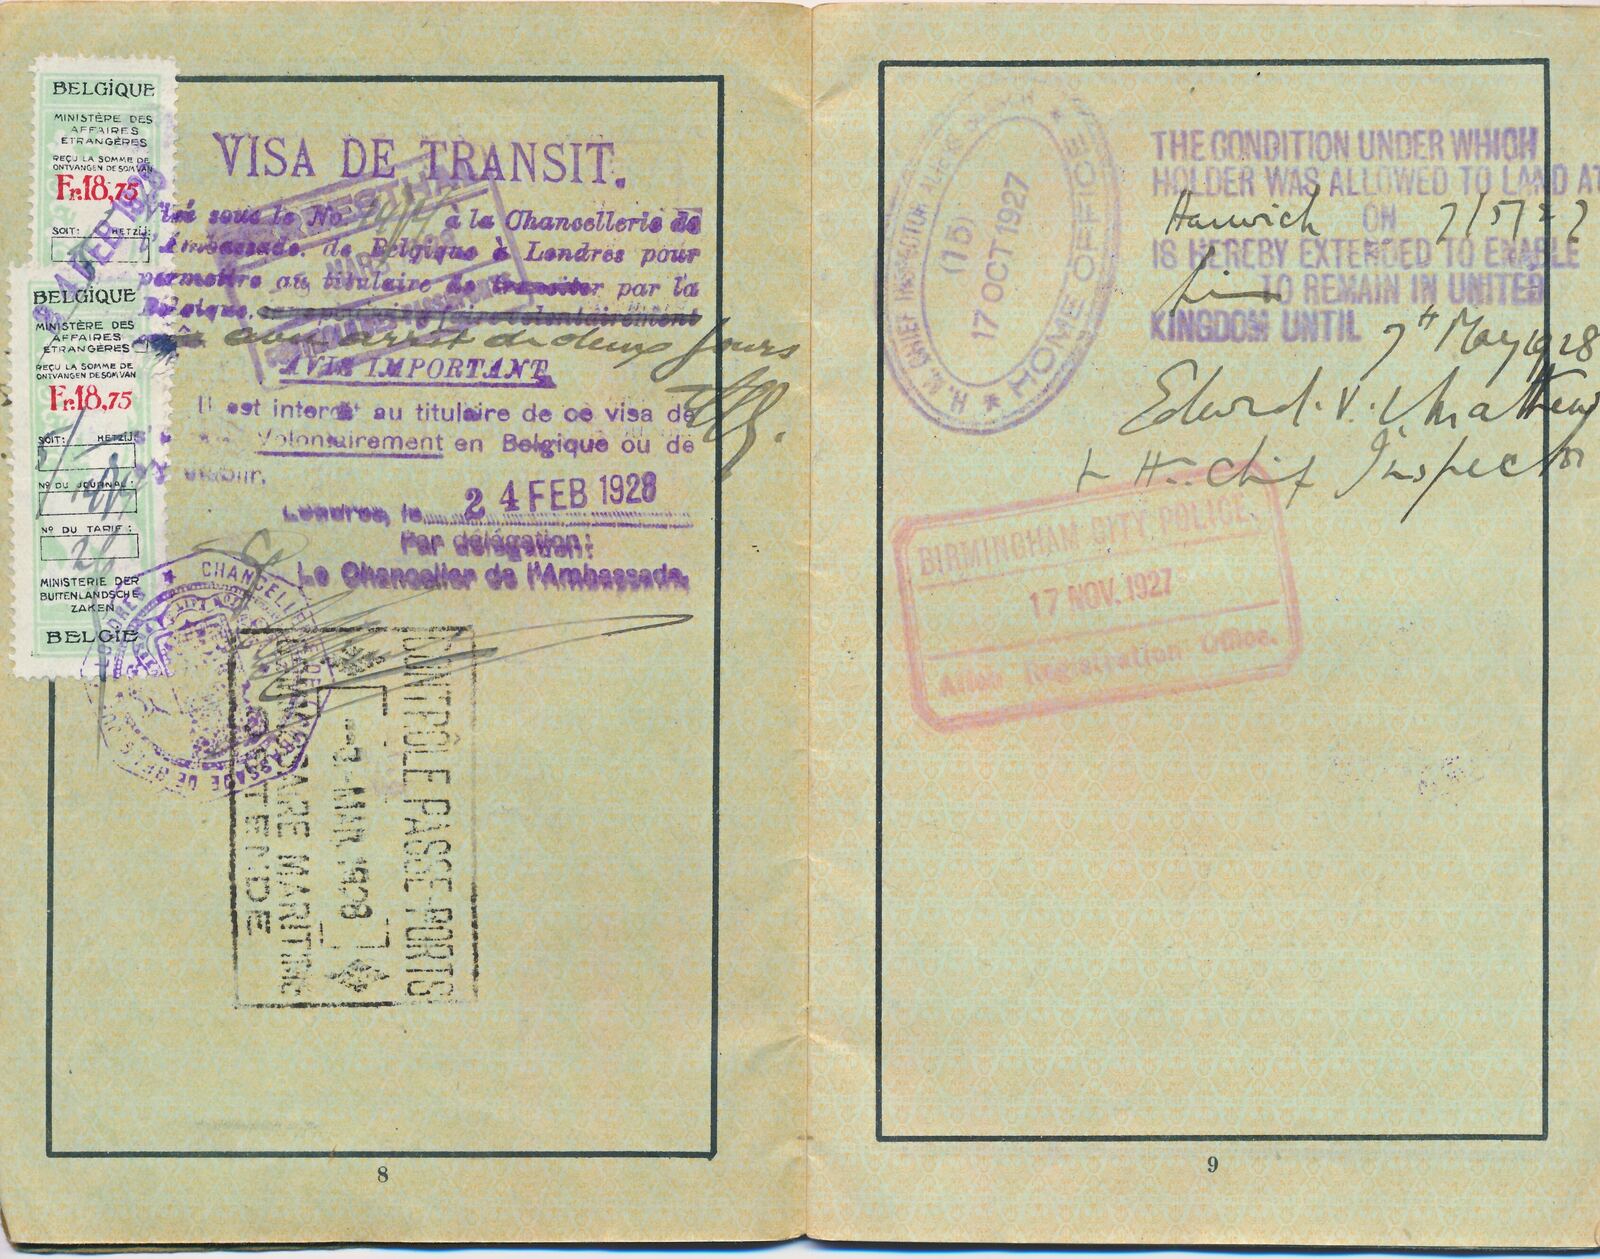 BELGIQUE
MINISTÈRE DES
AFFAIRES
ETRANGÈRES
REÇU LA SOMME DE
ONTVANGEN DE SOM VAN
Fr.18,75
SOIT: HETZIJ:
BELGIQUE
MINISTÈRE DES
AFFAIRES
ETRANGÈRES
REÇU LA SOMME DE
ONTVANGEN DE SOM VAN
Fr.18,75
SOIT: HETZIJ:
Nº DU JOURNAL:
Nº DU TARIF:
MINISTERIE DER
BUITENLANDSCHE
ZAKEN
BELGIE
VISA DE TRANSIT.
Visé sous le No. à la Chancellerie de
l'Ambassade de Belgique à Londres pour
permettre au titulaire de transiter par la
Belgique,
arrêt de deux jours
AVIS IMPORTANT
Il est interdit au titulaire de ce visa de
Volontairement en Belgique ou de
Londres, le 24 FEB 1928
Par délégation:
Le Chancelier de l'Ambassade,
CONTRÔLE PASSE-PORTS
MAR 1928
GARE MARITIME
OOSTENDE
8
H.M. CHIEF INSPECTOR
(15)
17 OCT 1927
HOME OFFICE
THE CONDITION UNDER WHICH
HOLDER WAS ALLOWED TO LAND AT
Harwich ON 7/5/27
IS HEREBY EXTENDED TO ENABLE
him TO REMAIN IN UNITED
KINGDOM UNTIL 7th May 1928
Edward. V.
Chief Inspector
BIRMINGHAM CITY POLICE.
17 NOV. 1927
Alien Registration Office.
9